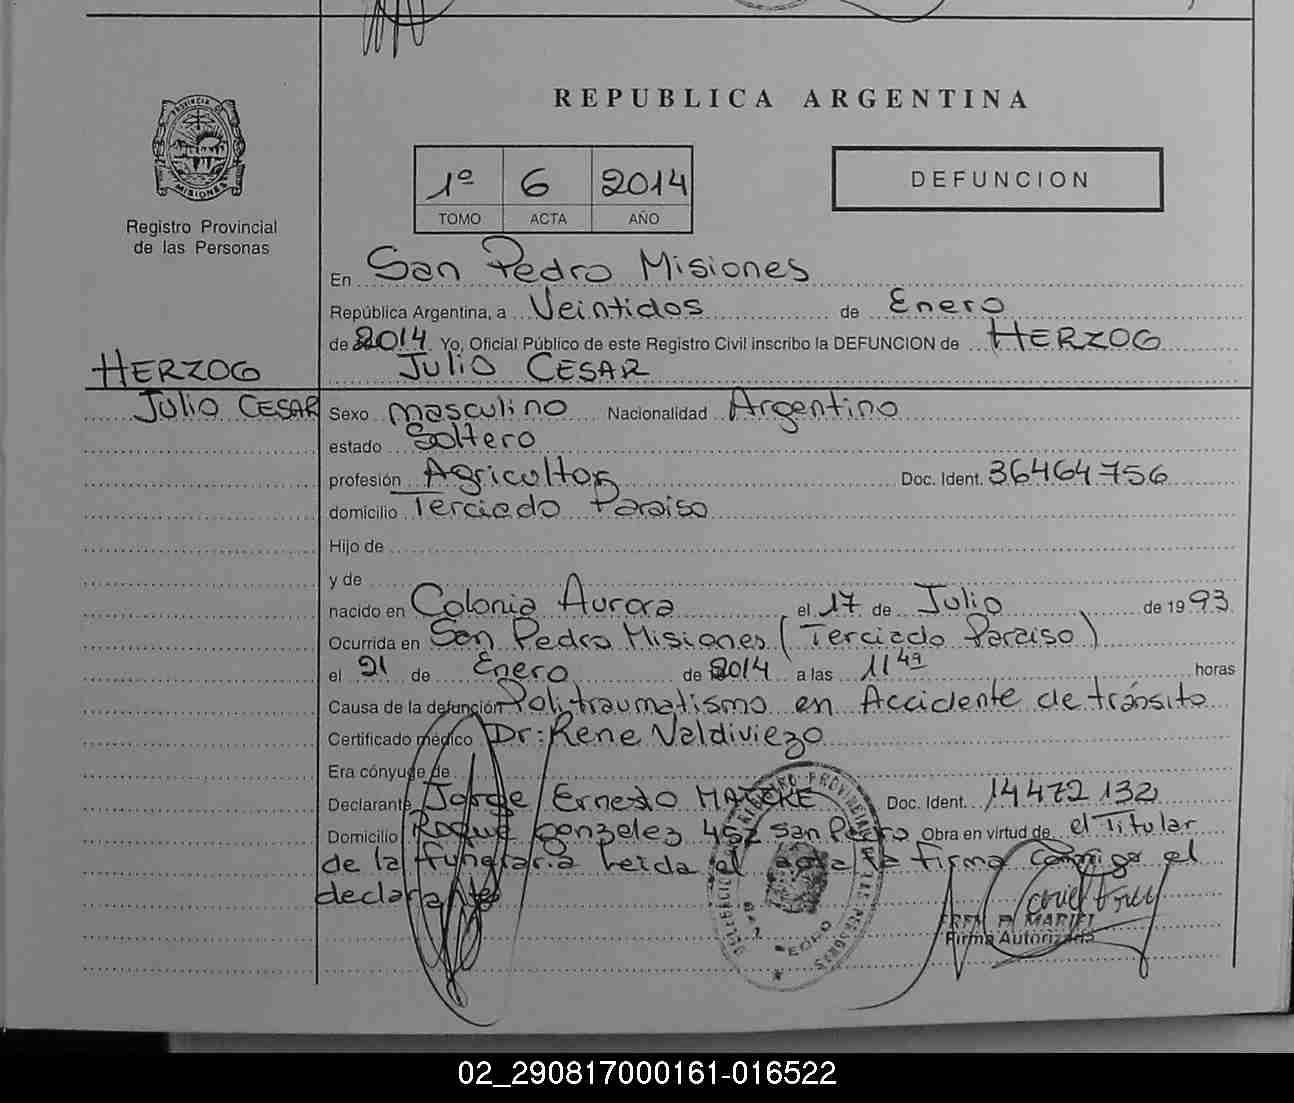 REPUBLICA ARGENTINA
PROVINCIA DE
MISIONES
Registro Provincial
de las Personas
1º 6 2014
TOMO ACTA AÑO
DEFUNCION
En San Pedro Misiones
República Argentina, a Veintidos de Enero
de 2014 Yo, Oficial Público de este Registro Civil inscribo la DEFUNCION de HERZOG
JULIO CESAR
HERZOG
JULIO CESAR
Sexo masculino Nacionalidad Argentino
estado Soltero
profesión Agricultor Doc. Ident. 36464756
domicilio Terciado Paraiso
Hijo de
y de
nacido en Colonia Aurora el 17 de Julio de 1993
Ocurrida en San Pedro Misiones (Terciado Paraiso)
el 21 de Enero de 2014 a las 11 horas
Causa de la defunción Politraumatismo en Accidente de tránsito
Certificado médico Dr: Rene Valdiviezo
Era cónyuge de
Declarante Jorge Ernesto MATZKE Doc. Ident. 14472132
Domicilio Roque gonzelez 452 San Pedro Obra en virtud de el Titular
de la funeraria Leida el acta la firma conmigo el
declarante
Firma Autorizada
02_290817000161-016522